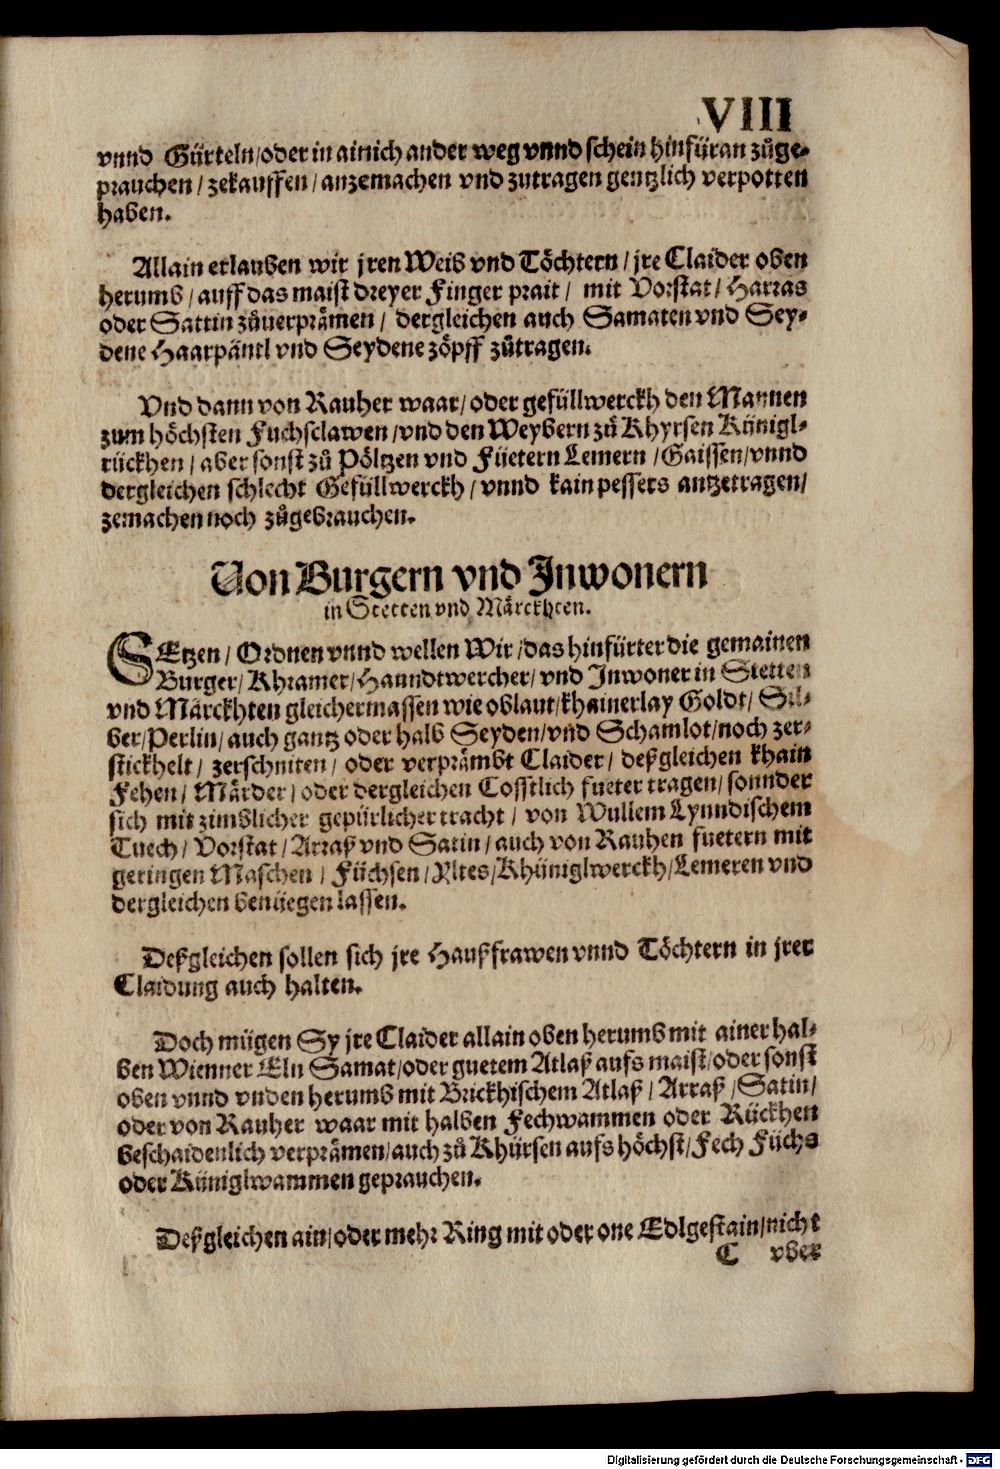 VIII
vnnd Gürteln/oder in ainich ander weg vnnd schein hinfüran zůge-
prauchen/zekauffen/anzemachen vnd zutragen gentzlich verpotten
haben.
Allain erlauben wir jren Weib vnd Töchtern/jre Claider oben
herumb/auff das maist dreyer Finger prait/ mit Vorstat/Harras
oder Sattin zůuerprämen/ dergleichen auch Samaten vnd Sey-
dene Haarpäntl vnd Seydene zöpff zůtragen.
Vnd dann von Rauher waar/oder gefüllwerckh den Mannen
zum höchsten Fuchsclawen/vnd den Weybern zů Khyrsen Künigl-
rückhen/aber sonst zů Pöltzen vnd Füetern Lemern/Gaissen/vnnd
dergleichen schlecht Gefüllwerckh/vnnd kain pessers antzetragen/
zemachen noch zůgebrauchen.
Von Burgern vnd Inwonern
in Stetten vnd Märckhten.
SEtzen/Ordnen vnnd wellen Wir/das hinfürter die gemainen
Burger/Khramer/Hanndtwercher/vnd Inwoner in Stetten
vnd Märckhten gleichermassen wie oblaut/khainerlay Goldt/Sil-
ber/Perlin/auch gantz oder halb Seyden/vnd Schamlot/noch zer-
stickhelt/ zerschniten/ oder verprämbt Claider/ deßgleichen khain
Fehen/ Märder/oder dergleichen Cosstlich fueter tragen/sonnder
sich mit zimblicher gepürlicher tracht/ von Wullem Lynndischem
Tuech/Vorstat/Arraß vnd Satin/auch von Rauhen fuetern mit
geringen Maschen/Füchsen/Yltes/Khüniglwerckh/Lemeren vnd
dergleichen benüegen lassen.
Deßgleichen sollen sich jre Haußfrawen vnnd Töchtern in jrer
Claidung auch halten.
Doch mügen Sy jre Claider allain oben herumb mit ainer hal-
ben Wienner Eln Samat/oder guetem Atlaß aufs maist/oder sonst
oben vnnd vnden herumb mit Brickhischem Atlaß/Arraß/Satin/
oder von Rauher waar mit halben Fechwammen oder Rückhen
beschaidenlich verprämen/auch zů Khürsen aufs höchst/Fech Füchs
oder Küniglwammen geprauchen.
Deßgleichen ain/oder mehr Ring mit oder one Edlgestain/nicht
C vber
Digitalisierung gefördert durch die Deutsche Forschungsgemeinschaft - DFG